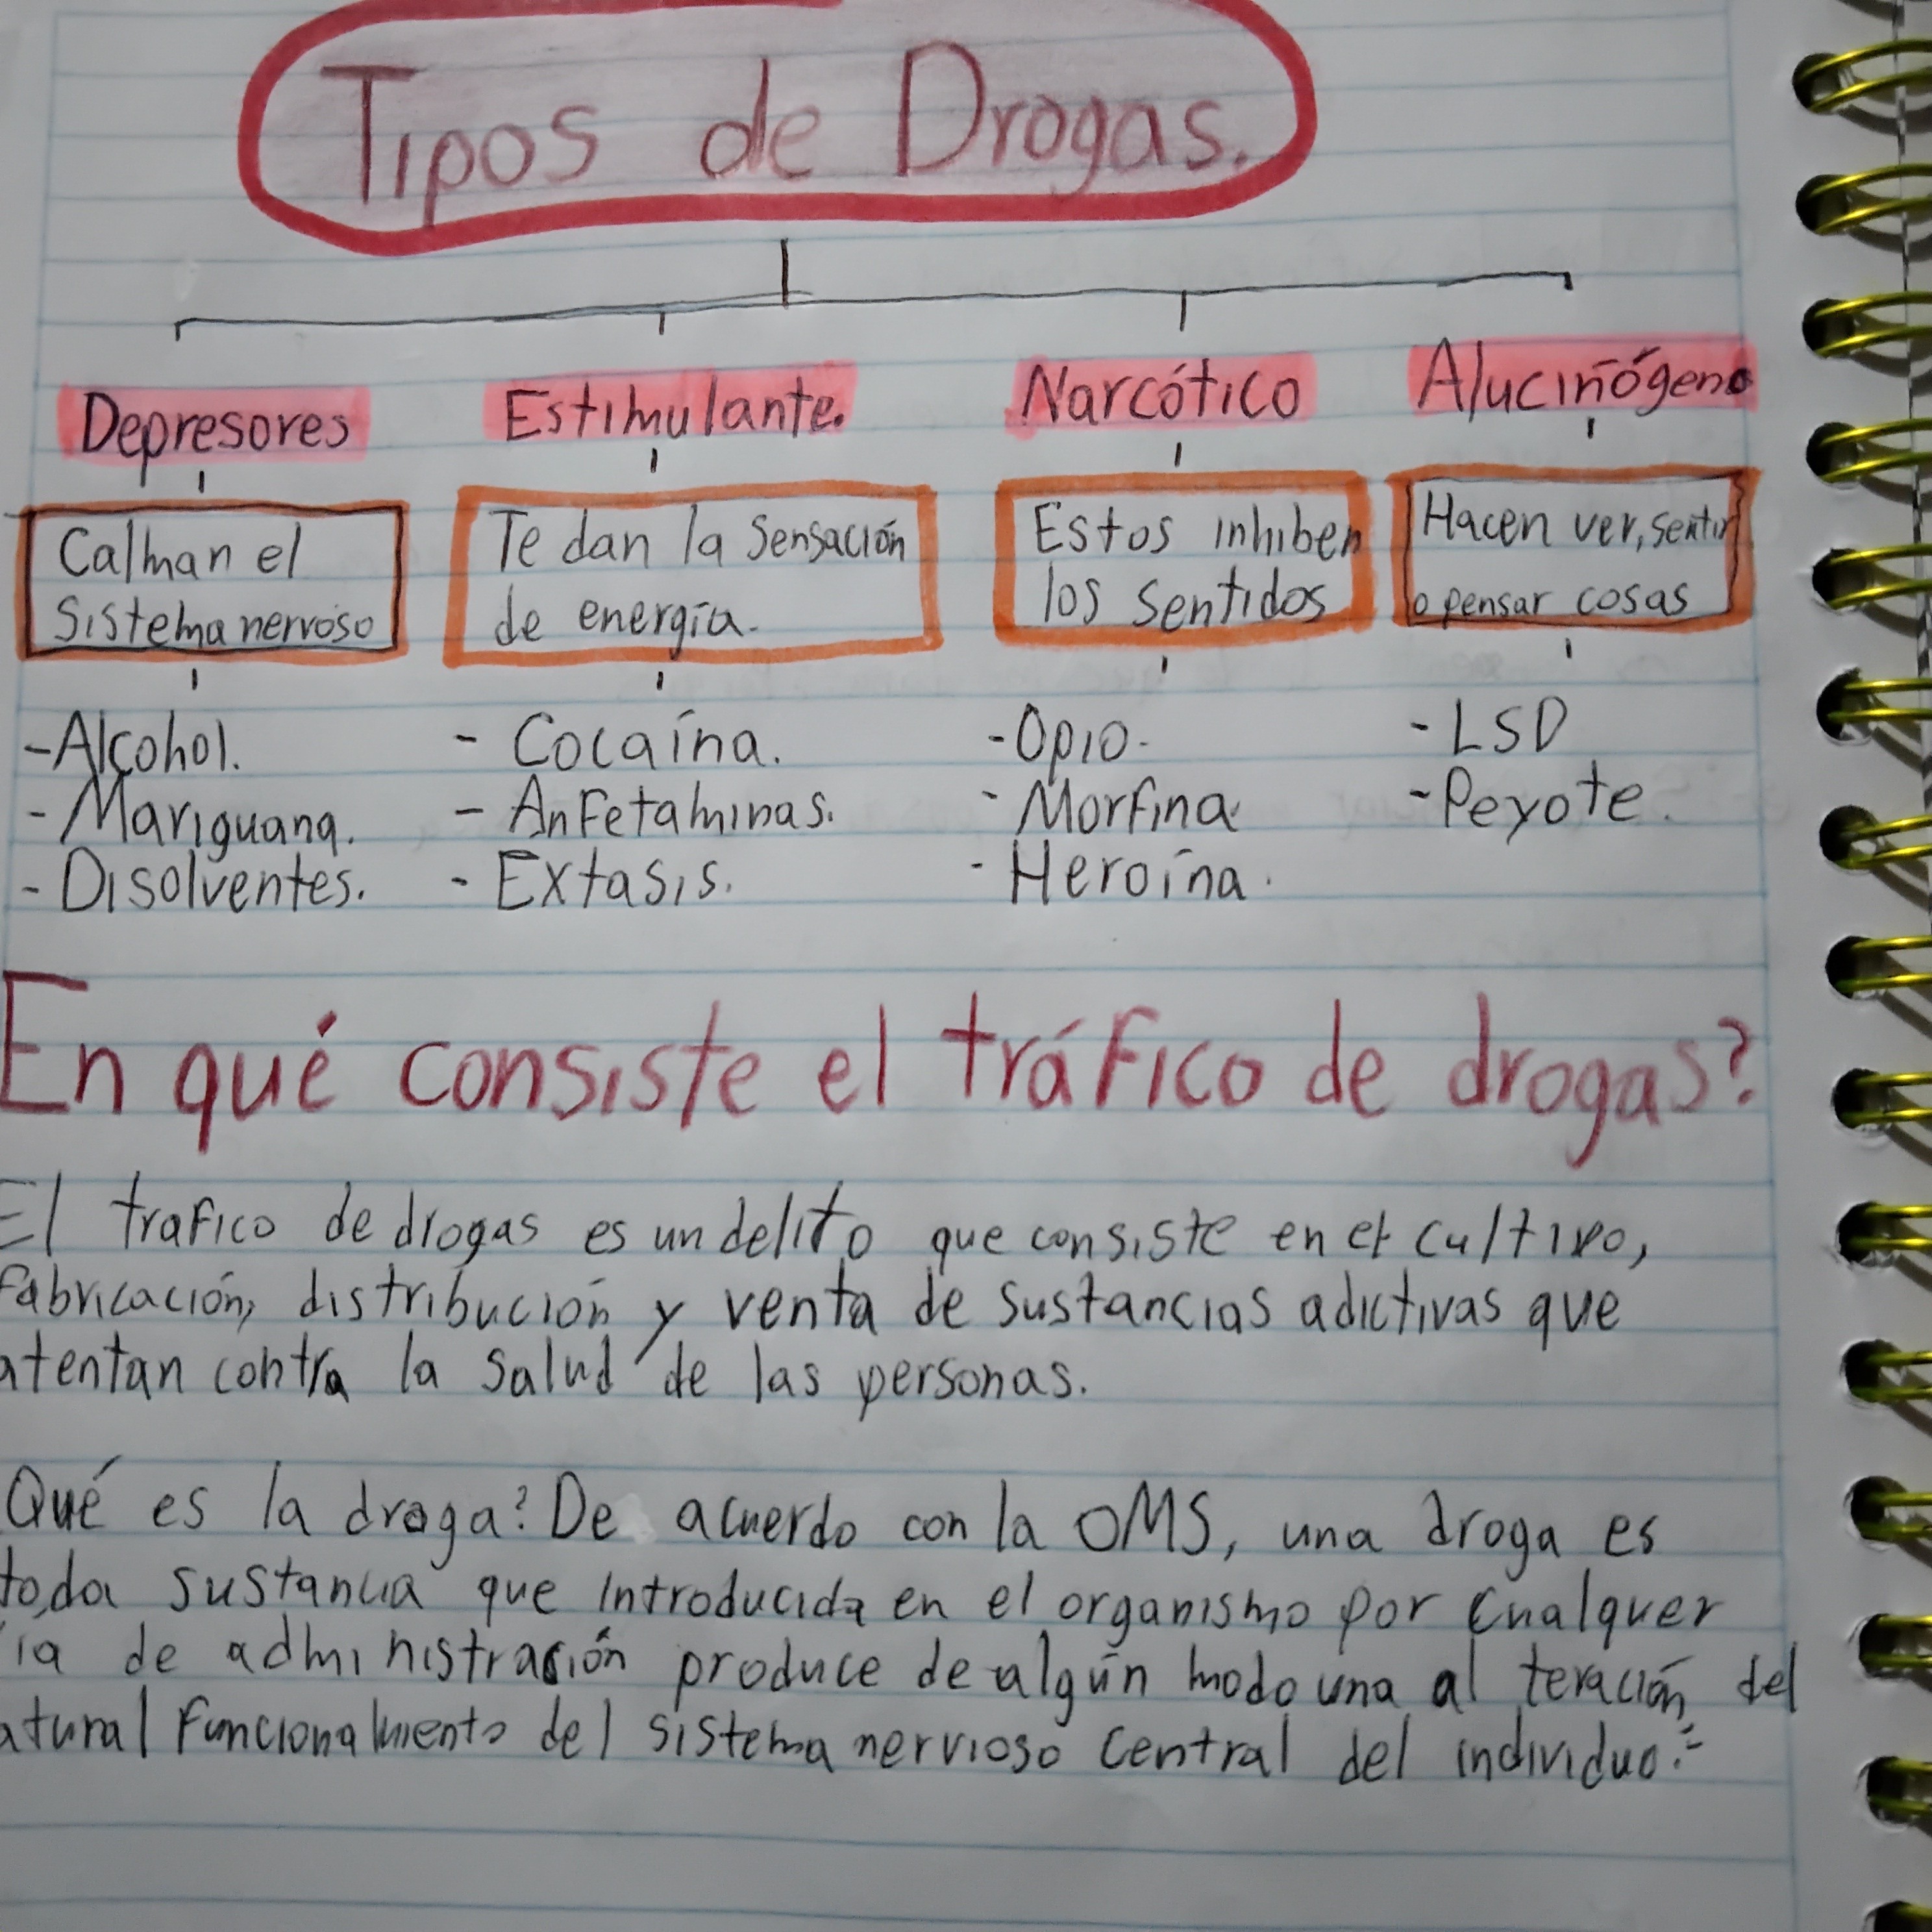 Tipos de Drogas.
Depresores Estimulante. Narcótico Alucinógeno
Calman el Te dan la Sensación Estos inhiben Hacen ver, sentir
Sistema nervoso de energía. los sentidos o pensar cosas
-Alcohol. - Cocaína. -Opio. - LSD
- Mariguana. - Anfetaminas. - Morfina -Peyote.
- Disolventes. - Extasis. - Heroína.
En qué consiste el tráfico de drogas?
El trafico de drogas es un delito que consiste en el cultivo,
fabricación, distribución y venta de sustancias adictivas que
atentan contra la salud de las personas.
Qué es la droga? De acuerdo con la OMS, una droga es
toda sustancia que introducida en el organismo por cualquer
ia de administración produce de algún modo una al teración del
atural funcionamiento del sistema nervioso central del individuo.